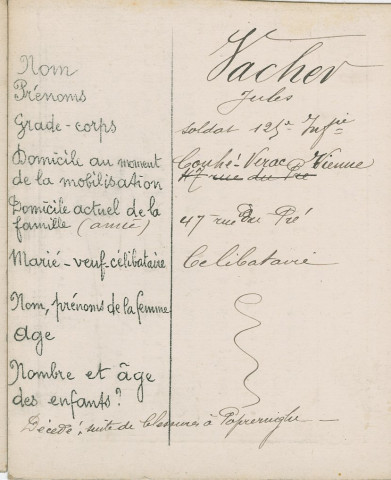 Nom Vacher
Prénoms Jules
Grade-corps soldat 125e Inf^ie
Domicile au moment Couhé-Verac Vienne
de la mobilisation 47 rue du Pré
Domicile actuel de la
famille (année) 47 rue du Pré
Marié-veuf-célibataire Celibataire
Nom, prénoms de la femme
age
Nombre et âge
des enfants?
Décédé, suite de blessures à